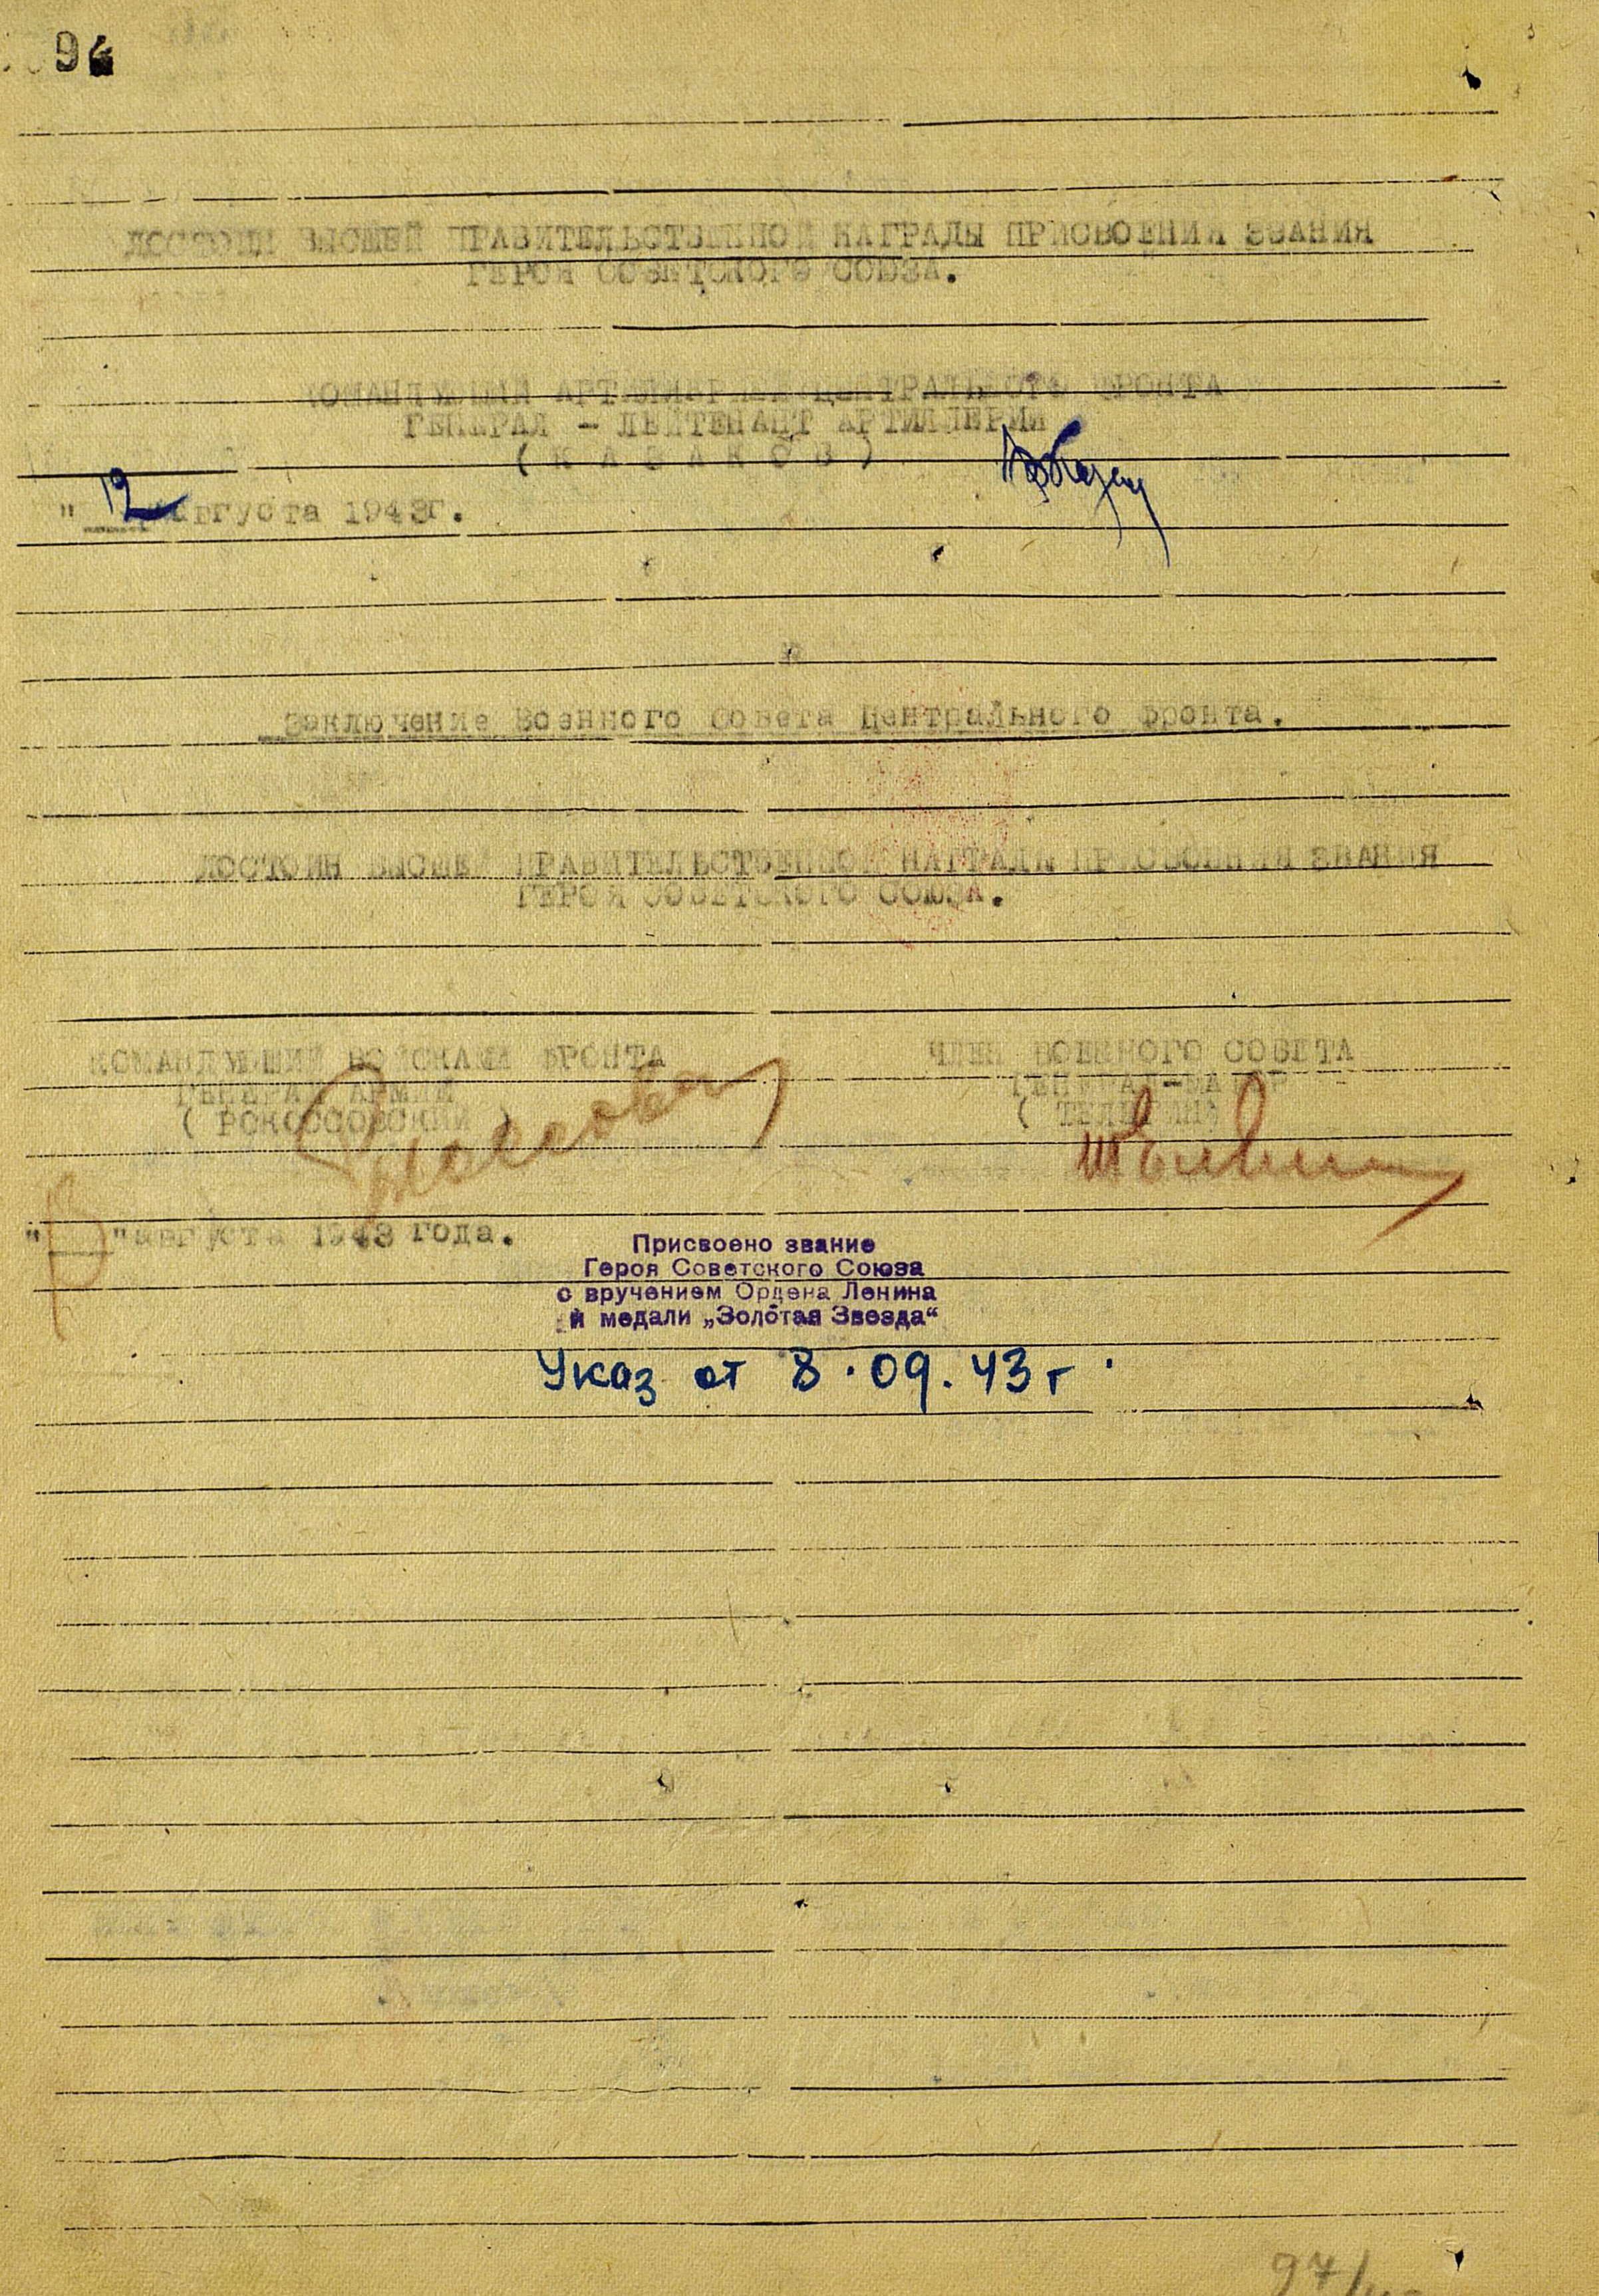 94
ДОСТОИН ВЫСШЕЙ ПРАВИТЕЛЬСТВЕННОЙ НАГРАДЫ ПРИСВОЕНИЯ ЗВАНИЯ
ГЕРОЯ СОВЕТСКОГО СОЮЗА.
КОМАНДУЮЩИЙ АРТИЛЛЕРИЕЙ ЦЕНТРАЛЬНОГО ФРОНТА
ГЕНЕРАЛ - ЛЕЙТЕНАНТ АРТИЛЛЕРИИ
( К А З А К О В )
" 12 " августа 1943г.
Заключение Военного Совета Центрального фронта.
ДОСТОИН ВЫСШЕЙ ПРАВИТЕЛЬСТВЕННОЙ НАГРАДЫ ПРИСВОЕНИЯ ЗВАНИЯ
ГЕРОЯ СОВЕТСКОГО СОЮЗА.
КОМАНДУЮЩИЙ ВОЙСКАМИ ФРОНТА
ГЕНЕРАЛ АРМИИ
( РОКОССОВСКИЙ )
ЧЛЕН ВОЕННОГО СОВЕТА
ГЕНЕРАЛ-МАЙОР
( ТЕЛЕГИН )
" " августа 1943 года.
Присвоено звание
Героя Советского Союза
с вручением Ордена Ленина
и медали „Золотая Звезда“
Указ от 8.09.43г.